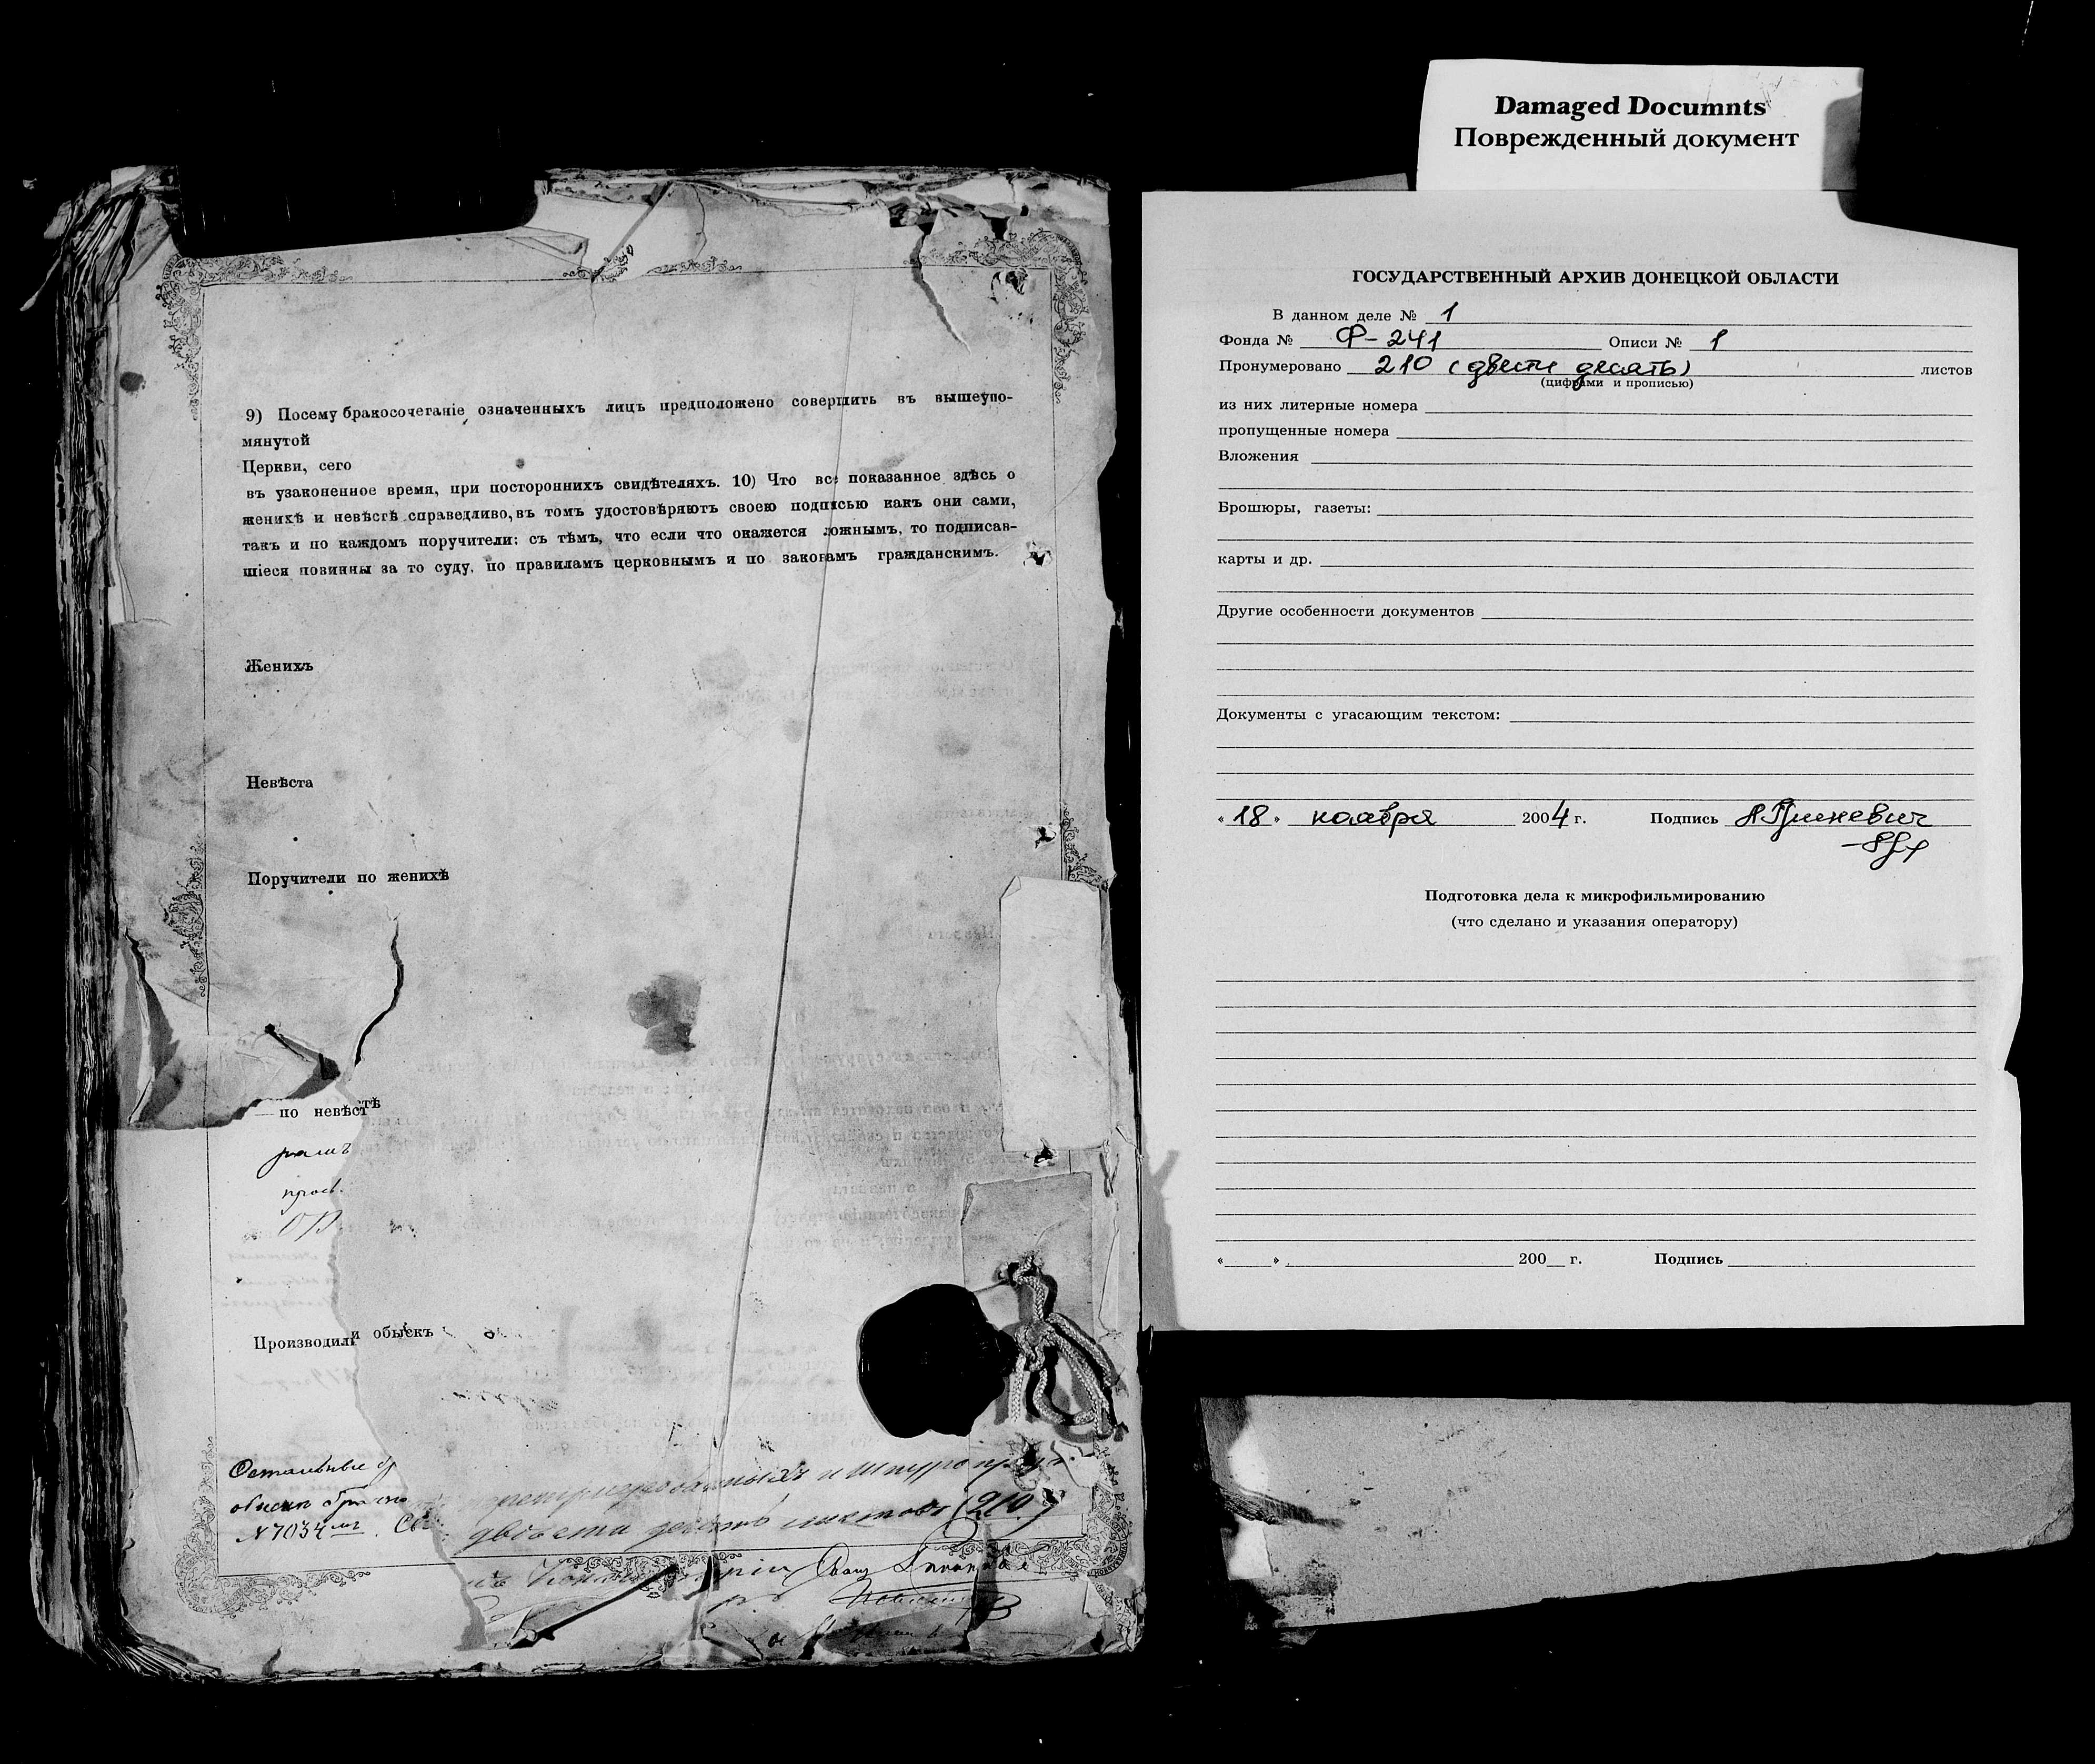 9) Посему бракосочетаніе означенныхъ лицъ предположено совершить въ вышеупо-
мянутой
Церкви, сего
въ узаконенное время, при постороннихъ свидѣтеляхъ. 10) Что все показанное здѣсь о
женихѣ и невѣстѣ справедливо, въ томъ удостовѣряютъ своею подписью какъ они сами,
такъ и по каждомъ поручители; съ тѣмъ, что если что окажется ложнымъ, то подписав-
шіеся повинны за то суду, по правиламъ церковнымъ и по законамъ гражданскимъ.
Женихъ
Невѣста
Поручители по женихѣ
— по невѣстѣ
Производили обыскъ
Остальные
обыски
№ 7034
двѣсти десять листовъ (210)
Damaged Documnts
Поврежденный документ
ГОСУДАРСТВЕННЫЙ АРХИВ ДОНЕЦКОЙ ОБЛАСТИ
В данном деле № 1
Фонда № Ф-241 Описи № 1
Пронумеровано 210 (двести десять) листов
(цифрами и прописью)
из них литерные номера
пропущенные номера
Вложения
Брошюры, газеты:
карты и др.
Другие особенности документов
Документы с угасающим текстом:
« 18 » ноября 2004 г. Подпись
Подготовка дела к микрофильмированию
(что сделано и указания оператору)
« » 200 г. Подпись